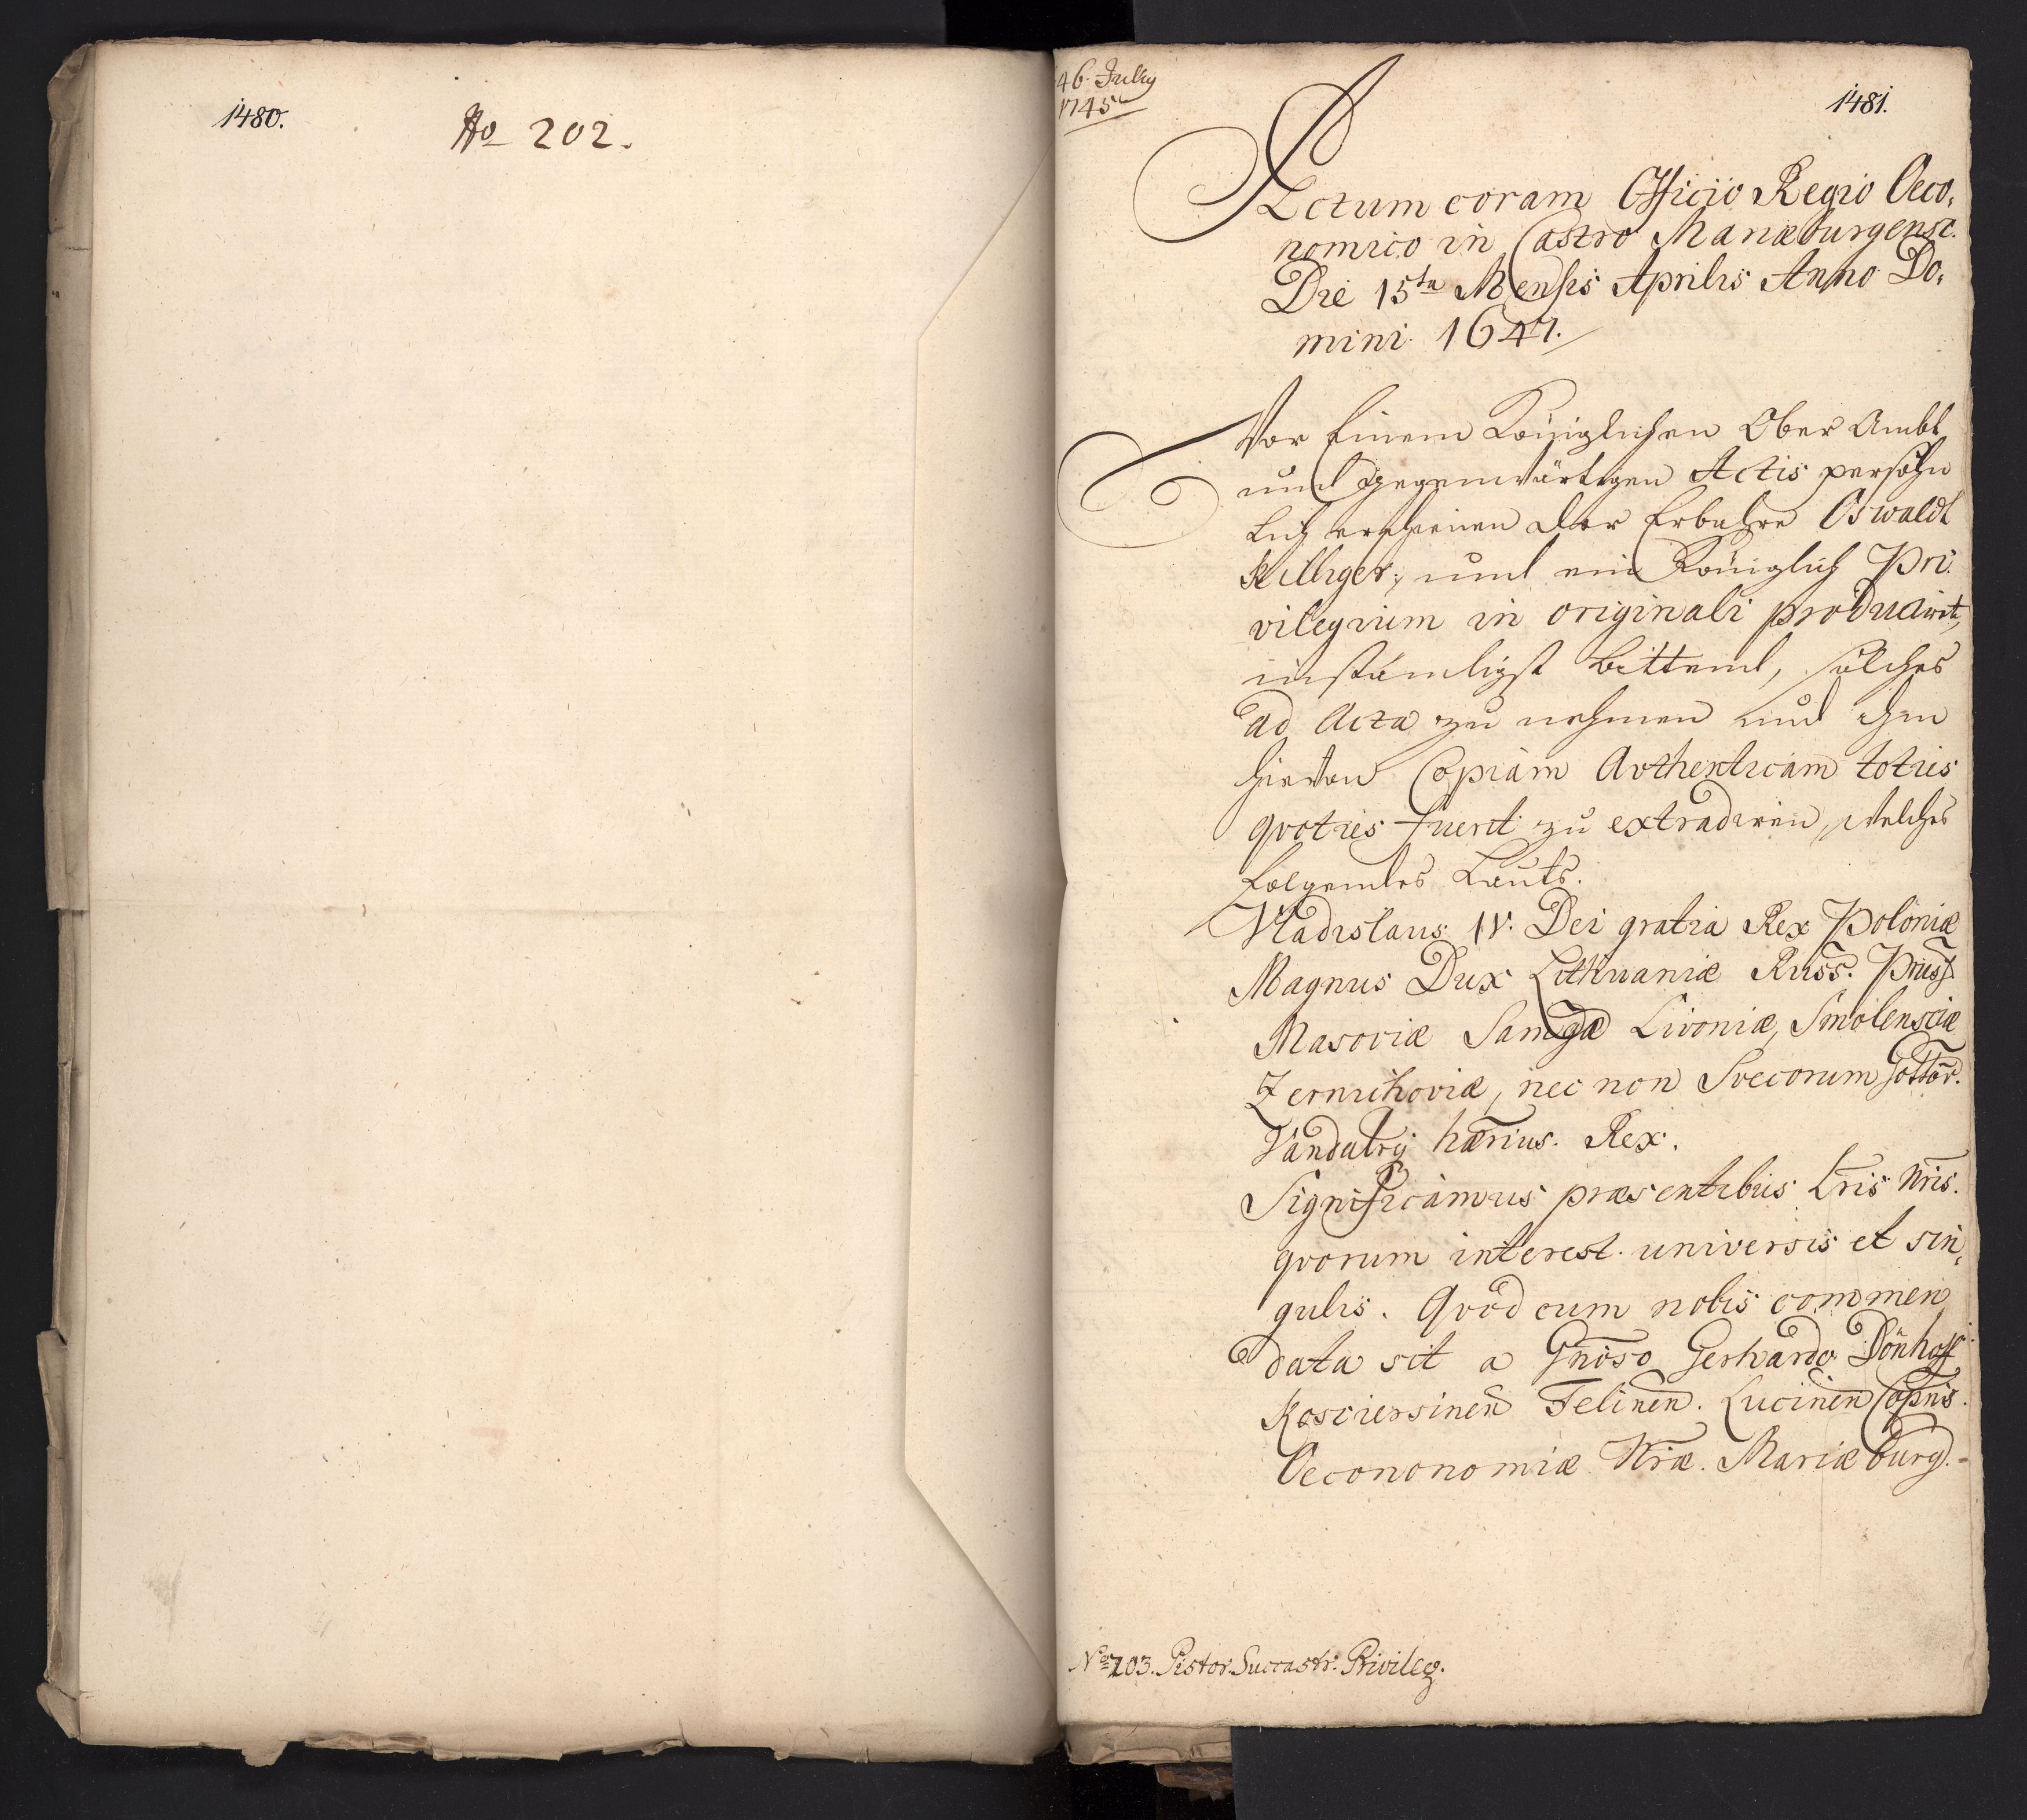 1480.
No 202.
46. July
1745
1481.
Actum coram Officio Regio Oeco,
nomico in Castro Mariæburgense.
Die 15ta Mensis Aprilis Anno Do,
mini 1647.
Vor Einem Königlichen Ober Ambt
und gegenwärtigen Actis persöhn
lich erschienen der Erbahre Oswaldt
Killiger, und ein Königlich Pri
vilegium in originali producirt,
instämligst bittend, solches
ad Acta zu nehmen und ihm
hievon Copiam Avthenticam toties
qvoties fuerit zu extradiren, welches
folgendes Lauts.
Vladislaus IV. Dei gratia Rex Poloniæ
Magnus Dux Lithuaniæ Russ. Pruss.
Masoviæ Samgæ Livoniæ, Smolensciæ
Zernichoviæ, nec non Svecorum Gottor.
Vandalrq hærius. Rex.
Significamus præsentibus Lris Nris.
qvorum interest universis et sin,
gulis. Qvod cum nobis commen
data sit a Gnoso Gerhardo Dönhoff
Kosciersinen Felinen. Lucinen Capnis.
Oecononomiæ Nræ. Mariæburg.
No 203. Pistor. Succastr. Privileg.